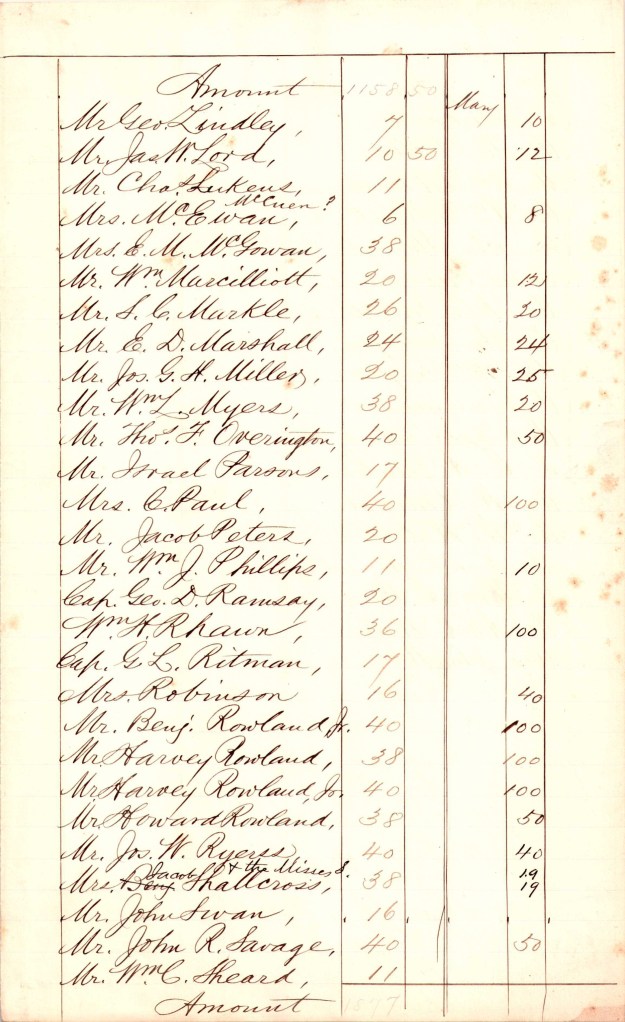 Amount 1158 50 Many
Mr Geo. Lindley, 7 10
Mr. Jas. W. Lord, 10 50 12
Mr. Chas. Lukens, 11
McCuen?
Mrs. McEwan, 6 8
Mrs. E. M. McGowan, 38
Mr. Wm Marcilliott, 20 12
Mr. S. C. Markle, 26 20
Mr. E. D. Marshall, 24 24
Mr. Jos. G. H. Miller, 20 25
Mr. Wm L. Myers, 38 20
Mr. Thos. F. Overington, 40 50
Mr. Israel Parsons, 17
Mrs. C. Paul, 40 100
Mr. Jacob Peters, 20
Mr. Wm J. Phillips, 11 10
Cap. Geo. D. Ramsay, 20
Wm H. Rhawn, 36 100
Cap. G. L. Ritman, 17
Mrs. Robinson 16 40
Mr. Benj. Rowland, Jr. 40 100
Mr. Harvey Rowland, 38 100
Mr Harvey Rowland, Jr. 40 100
Mr. Howard Rowland, 38 50
Mr. Jos. W. Ryerss 40 40
Jacob & the Misses S. 19
Mrs. Benj. Shallcross, 38 19
Mr. John Swan, 16
Mr. John R. Savage, 40 50
Mr. Wm C. Sheard, 11
Amount